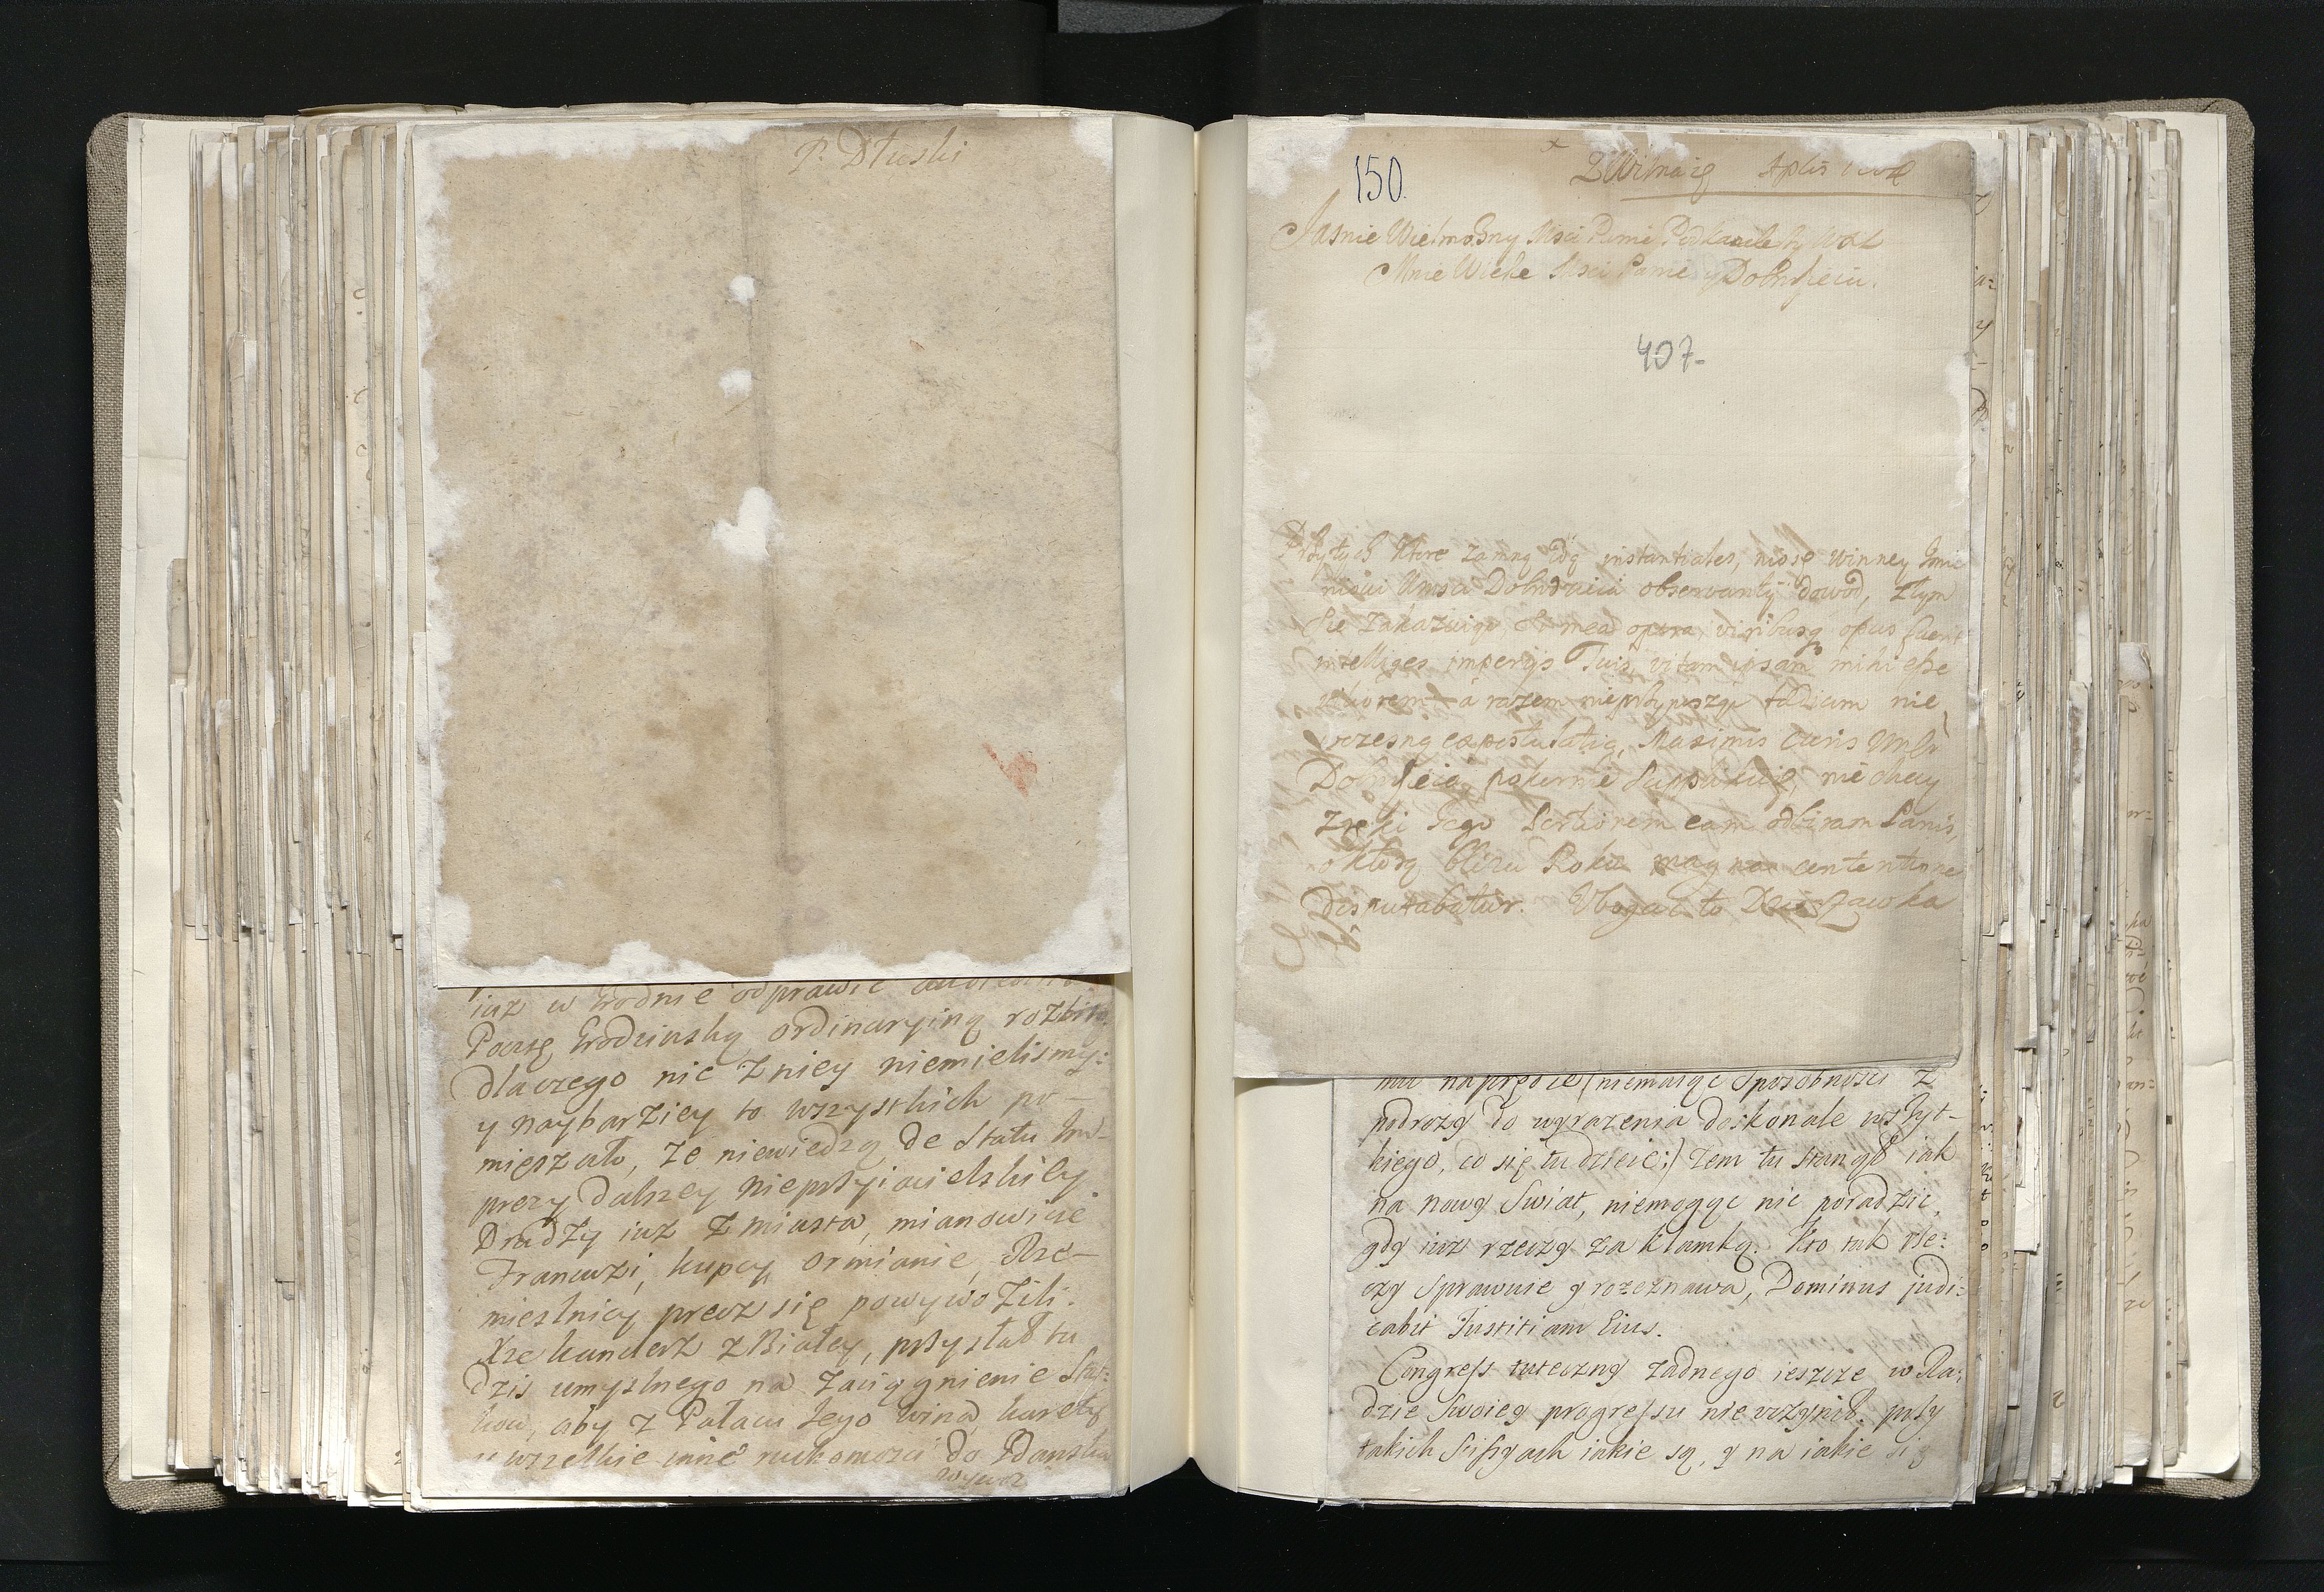 P. Dłuski
iuz w Grodnie odprawic
Pocztę Grodzieńską ordinaryiną rozbito,
dlaczego nic z niey niemielismy:
y naybarziey to wszystkich po-
mięszało, że niewiedzą de Statu Im-
prezy dalszey nieprzyiacielskiey.
Drudzy iuz z miasta, mianowicie
Francuzi, kupcy, Ormianie, Rze-
mieslnicy precz się powywozili.
Xże kanclerz z Białey, przysłał tu
dzis umyslnego na zaciągnienie Stat-
kow, aby z Pałacu Jego wina, karety
y wszelkie inne ruchomosci do Gdanska
wywoz
150.
Z Wilna 18 Aplis
Jasnie Wielmozny Msci Panie Podkanclerzy WXL
Mnie Wielce Msci Panie y Dobrdzieiu.
407-
Przy tych ktore za mną idą instantiales, niosę winney Imie
niowi Wmsci Dobrodzieia observantij dowod, z tym
się zakazuiąc, Si mea opera, viribusq opus fuerit
intelliges imperijs Tuis, vitam ipsam mihi esse
a razem nieprzypuszcząc tadium nie
wczesną expostulatią, Maximis Curis Wmści
Dobrdzieia, pokornie Supplikuię, niechay
z ręki Jego Sertiorem eam odbieram Panis,
o ktorą blizu Roku magna contentione
disputabatur. Ubogać to Dzierzawka
nac naprędce (niemaiąc sposobnosci z
podrozy do wyrazenia doskonale wszyt-
kiego, co się tu dzieie:) Zem tu stanął iak
na nowy Swiat, niemogąc nic poradzic,
gdy iuz rzeczy za klamką. Kto tak rze:
czy sprawuie y rozeznawa, Dominus judi:
cabit Justitiam Eius.
Congress tuteczny zadnego ieszcze w Ra:
dzie Swoiey progressu nie uczynił, przy
takich Scissyach iakie są, y na iakie się